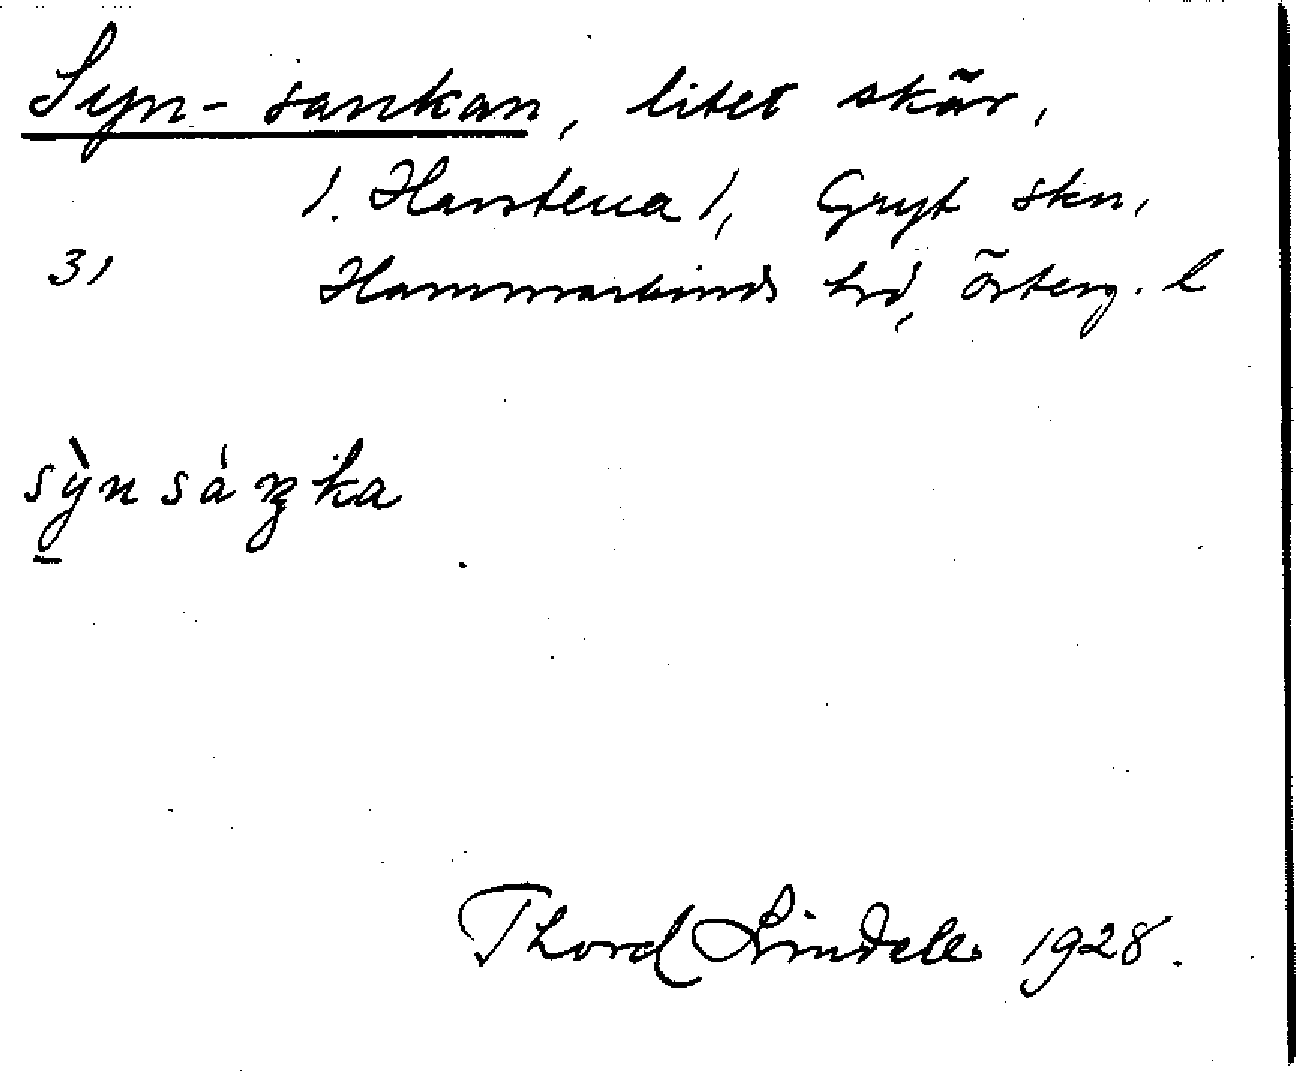 Syn-sankan, litet skär,
1. Harstena 1, Gryt skn,
31 Hammarkinds hd, österg. l
sỳnsáŋka
Thord Lindell 1928.